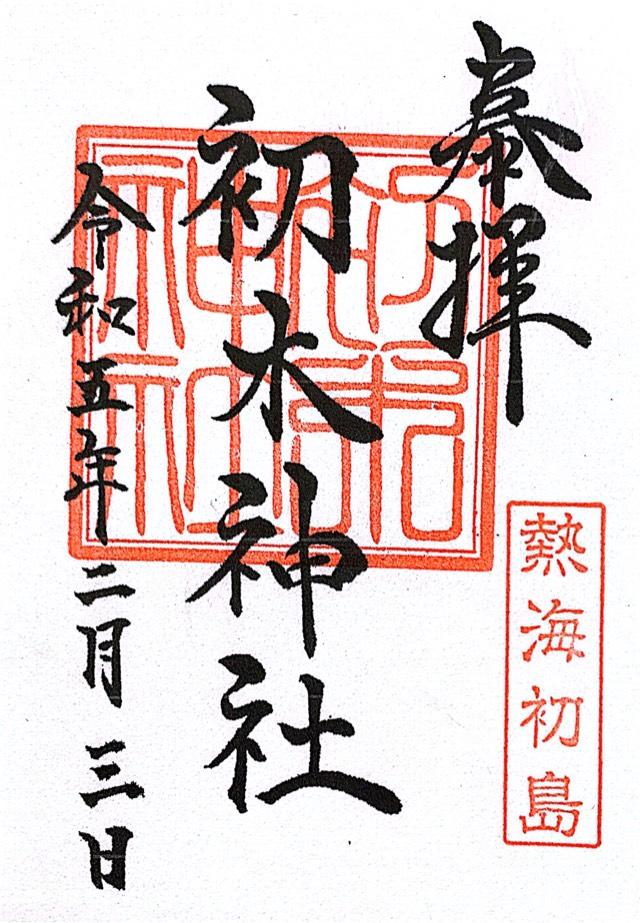 奉拝
熱海初島
初木神社
令和五年二月三日